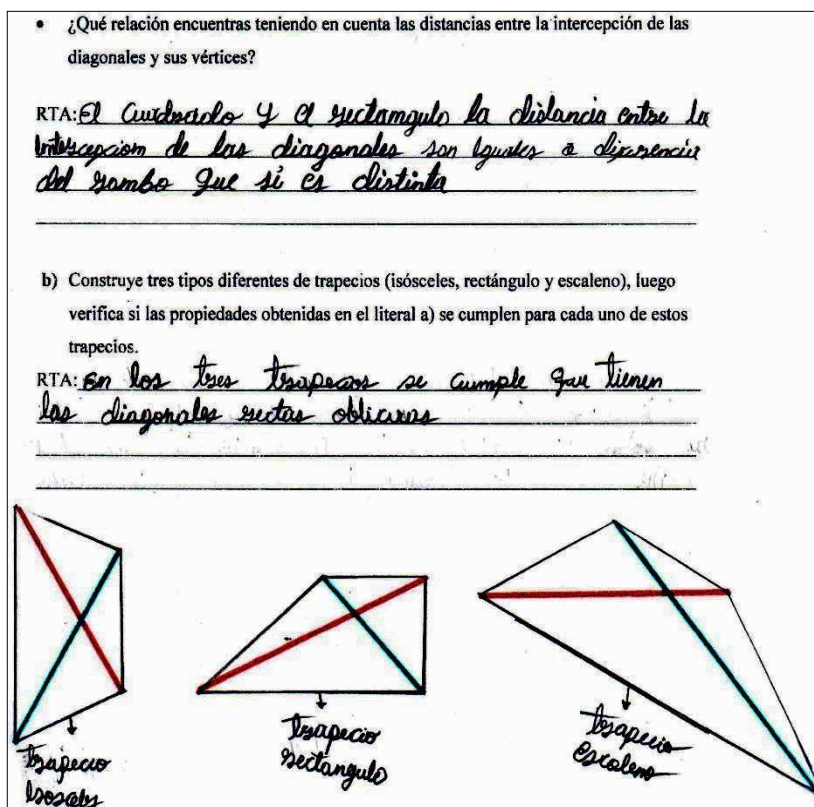 • ¿Qué relación encuentras teniendo en cuenta las distancias entre la intercepción de las
diagonales y sus vértices?
RTA: El Cuadrado y el rectamgulo la distancia entre la
interscepciom de las diagonales son Iguales a diferencia
del rombo que si es distinta
b) Construye tres tipos diferentes de trapecios (isósceles, rectángulo y escaleno), luego
verifica si las propiedades obtenidas en el literal a) se cumplen para cada uno de estos
trapecios.
RTA: En los tres trapecios se cumple que tienen
las diagonales rectas oblicuas
trapecio
Isosceles
trapecio
rectangulo
trapecio
escaleno